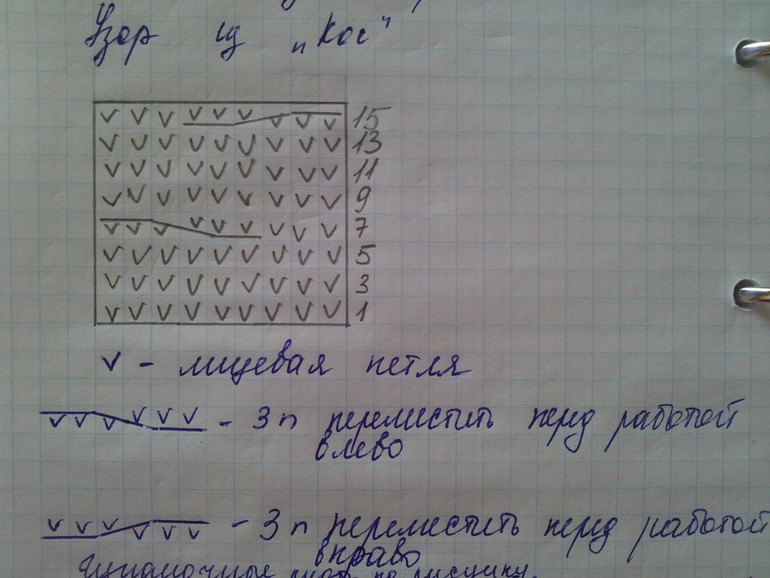 Узор из „Кос"
v v v v v v v v v 15
v v v v v v v v v 13
v v v v v v v v v 11
v v v v v v v v v 9
v v v v v v v v v 7
v v v v v v v v v 5
v v v v v v v v v 3
v v v v v v v v v 1
v - лицевая петля
v v v v v v - 3 п переместить перед работой
влево
v v v v v v - 3 п переместить перед работой
вправо
по рисунку.